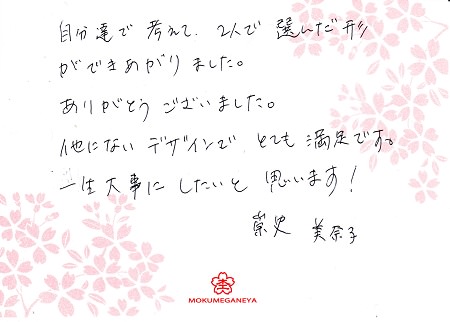 自分達で考えて、2人で選んだ形
ができあがりました。
ありがとうございました。
他にないデザインで とても満足です。
一生大事にしたいと思います！
崇史 美奈子
MOKUMEGANEYA